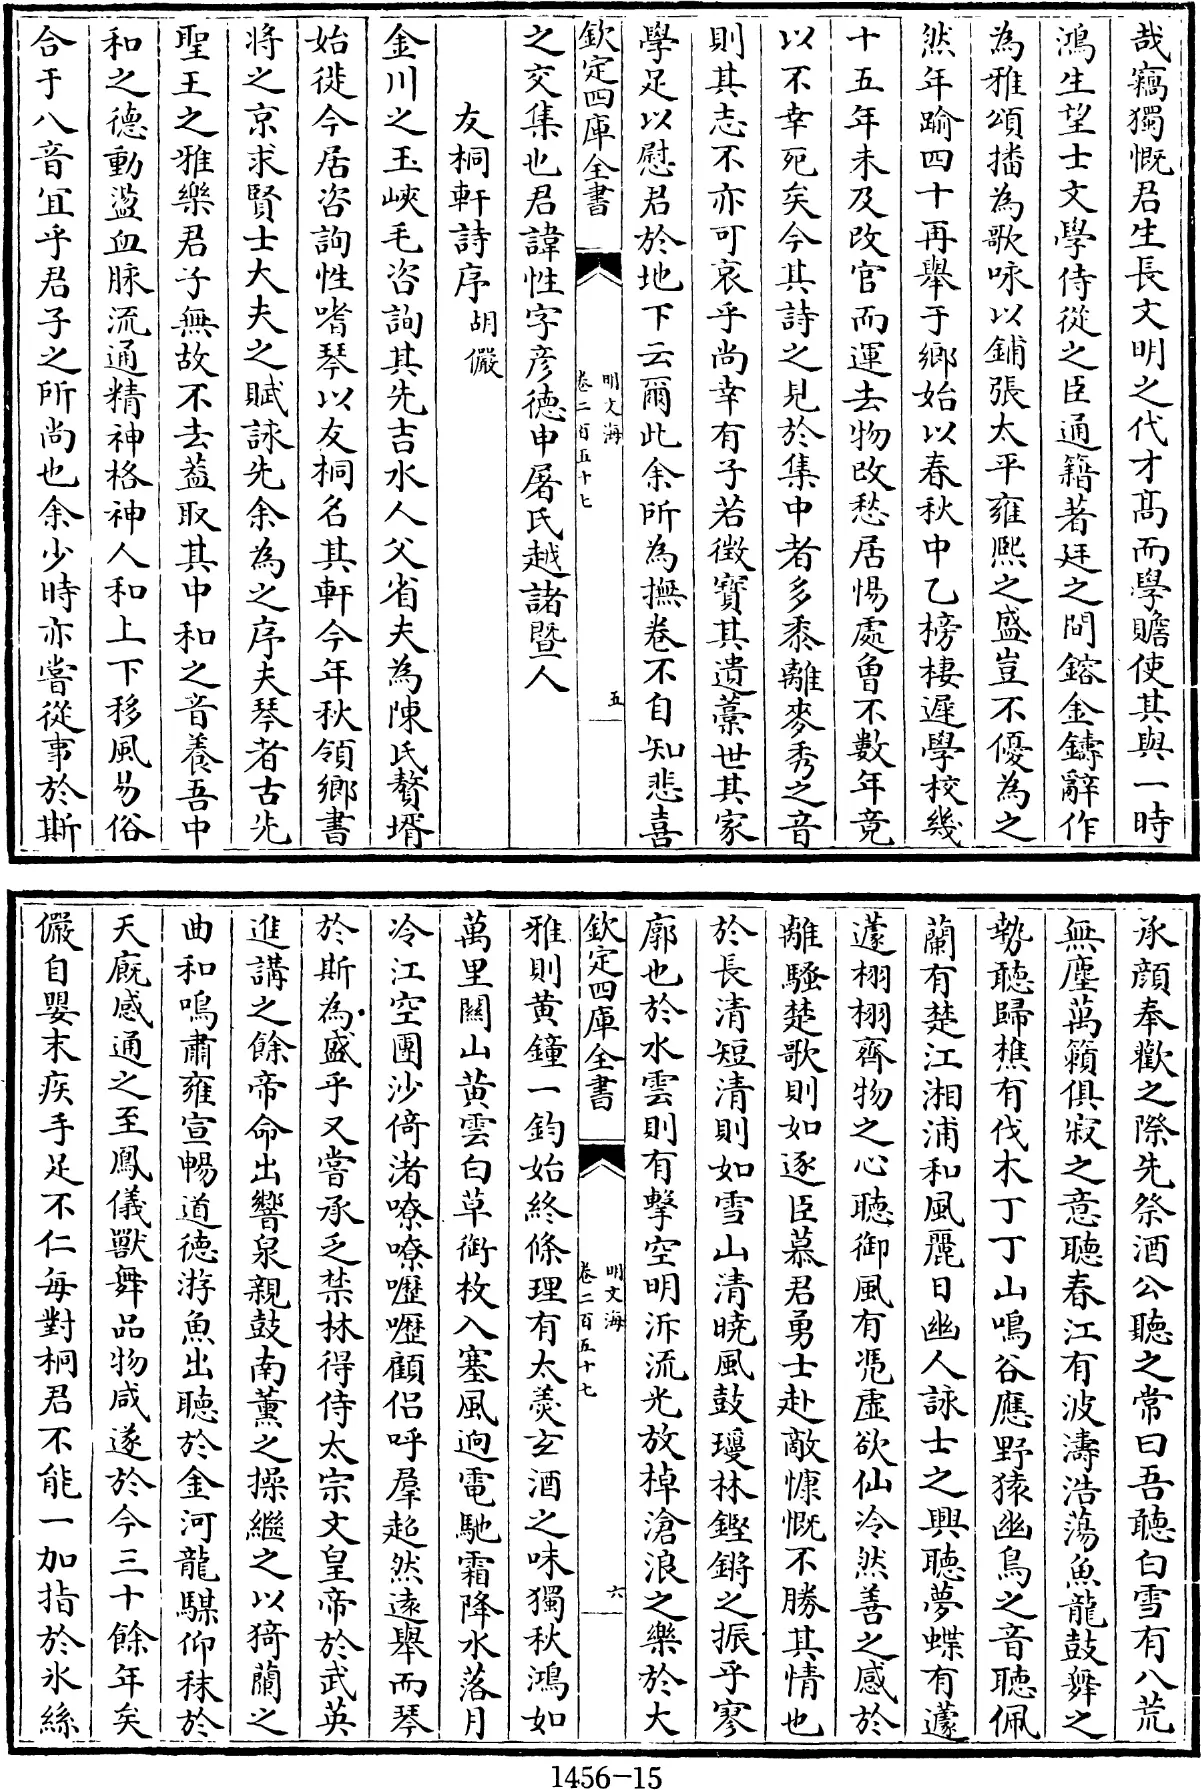 哉竊獨慨君生長文明之代才髙而學贍使其與一時
鴻生望士文學侍從之臣通籍著廷之間鎔金鑄辭作
為雅頌播為歌咏以鋪張太平雍熙之盛豈不優為之
然年踰四十再舉于鄉始以春秋中乙榜棲遲學校幾
十五年未及改官而運去物改愁居惕處曾不數年竟
以不幸死矣今其詩之見於集中者多黍離麥秀之音
則其志不亦可哀乎尚幸有子若徴寳其遺藁世其家
學足以慰君於地下云爾此余所為撫卷不自知悲喜
欽定四庫全書
明文海
卷二百五十七
五
之交集也君諱性字彦德申屠氏越諸暨人
友桐軒詩序胡儼
金川之玉峽毛咨詢其先吉水人父省夫為陳氏贅壻
始徙今居咨詢性嗜琴以友桐名其軒今年秋領鄉書
將之京求賢士大夫之賦詠先余為之序夫琴者古先
聖王之雅樂君子無故不去葢取其中和之音養吾中
和之德動盪血脉流通精神格神人和上下移風易俗
合于八音宜乎君子之所尚也余少時亦嘗從事於斯
承顔奉歡之際先祭酒公聽之常曰吾聽白雪有八荒
無塵萬籟俱寂之意聽春江有波濤浩蕩魚龍鼓舞之
勢聽歸樵有伐木丁丁山鳴谷應野猿幽鳥之音聽佩
蘭有楚江湘浦和風麗日幽人詠士之興聽夢蝶有蘧
蘧栩栩齊物之心聽御風有慿虚欲仙泠然善之感於
離騷楚歌則如逐臣慕君勇士赴敵慷慨不勝其情也
於長清短清則如雪山清曉風鼓瓊林鏗鏘之振乎寥
廓也於水雲則有擊空明泝流光放棹滄浪之樂於大
欽定四庫全書
明文海
卷二百五十七
六
雅則黄鐘一鈞始終條理有太羮玄酒之味獨秋鴻如
萬里關山黄雲白草銜枚入塞風逈電馳霜降水落月
冷江空團沙倚渚嘹嘹嚦嚦顧侣呼羣起然逺舉而琴
於斯為盛乎又嘗承乏禁林得侍太宗文皇帝於武英
進講之餘帝命出響泉親鼓南薫之操繼之以猗蘭之
曲和鳴肅雍宣暢道徳游魚出聽於金河龍騋仰秣於
天廐感通之至鳳儀獸舞品物咸遂於今三十餘年矣
儼自嬰末疾手足不仁每對桐君不能一加指於氷絲
1456-15